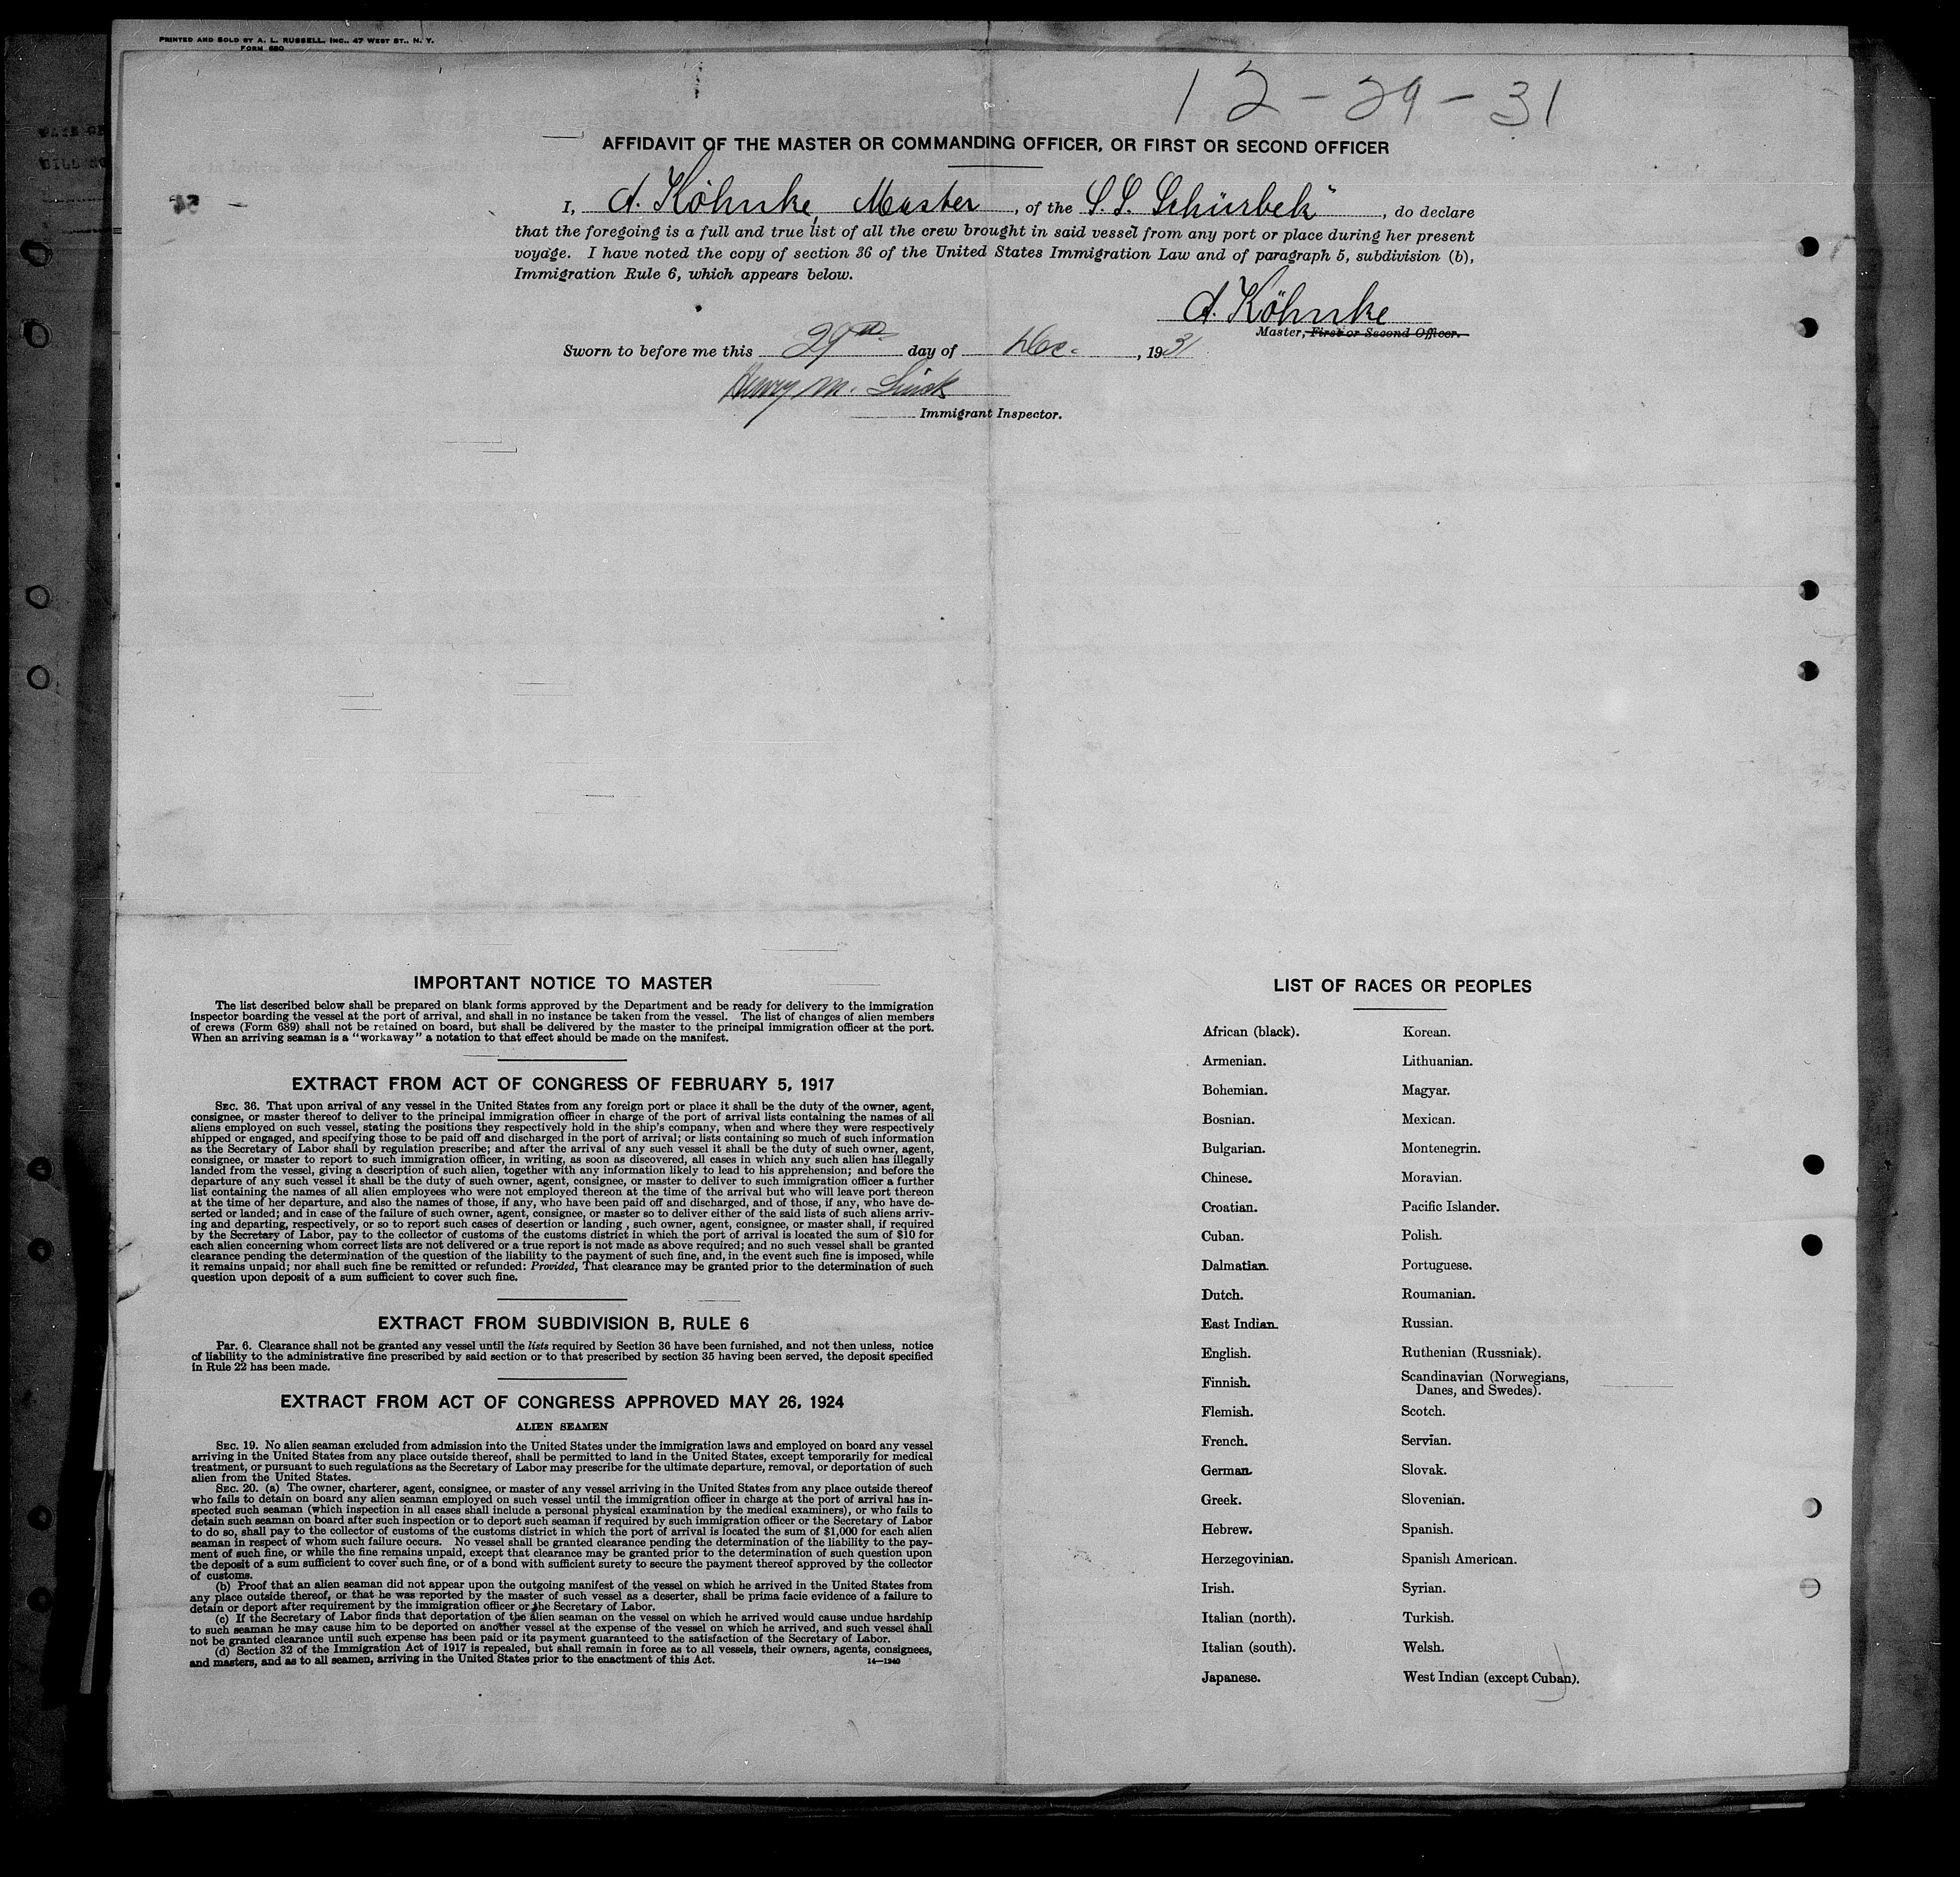 PRINTED AND SOLD BY A. L. RUSSELL, INC., 47 WEST ST., N. Y.
FORM 680
12-29-31
AFFIDAVIT OF THE MASTER OR COMMANDING OFFICER, OR FIRST OR SECOND OFFICER
I, A. Köhnke, Master, of the S.S. Schürbek", do declare
that the foregoing is a full and true list of all the crew brought in said vessel from any port or place during her present
voyage. I have noted the copy of section 36 of the United States Immigration Law and of paragraph 5, subdivision (b),
Immigration Rule 6, which appears below.
A. Köhnke
Master, First or Second Officer.
Sworn to before me this 29th day of Dec., 1931
Henry M.
Immigrant Inspector.
IMPORTANT NOTICE TO MASTER
The list described below shall be prepared on blank forms approved by the Department and be ready for delivery to the immigration
inspector boarding the vessel at the port of arrival, and shall in no instance be taken from the vessel. The list of changes of alien members
of crews (Form 689) shall not be retained on board, but shall be delivered by the master to the principal immigration officer at the port.
When an arriving seaman is a "workaway" a notation to that effect should be made on the manifest.
EXTRACT FROM ACT OF CONGRESS OF FEBRUARY 5, 1917
SEC. 36. That upon arrival of any vessel in the United States from any foreign port or place it shall be the duty of the owner, agent,
consignee, or master thereof to deliver to the principal immigration officer in charge of the port of arrival lists containing the names of all
aliens employed on such vessel, stating the positions they respectively hold in the ship's company, when and where they were respectively
shipped or engaged, and specifying those to be paid off and discharged in the port of arrival; or lists containing so much of such information
as the Secretary of Labor shall by regulation prescribe; and after the arrival of any such vessel it shall be the duty of such owner, agent,
consignee, or master to report to such immigration officer, in writing, as soon as discovered, all cases in which any such alien has illegally
landed from the vessel, giving a description of such alien, together with any information likely to lead to his apprehension; and before the
departure of any such vessel it shall be the duty of such owner, agent, consignee, or master to deliver to such immigration officer a further
list containing the names of all alien employees who were not employed thereon at the time of the arrival but who will leave port thereon
at the time of her departure, and also the names of those, if any, who have been paid off and discharged, and of those, if any, who have de-
serted or landed; and in case of the failure of such owner, agent, consignee, or master so to deliver either of the said lists of such aliens arriv-
ing and departing, respectively, or so to report such cases of desertion or landing , such owner, agent, consignee, or master shall, if required
by the Secretary of Labor, pay to the collector of customs of the customs district in which the port of arrival is located the sum of $10 for
each alien concerning whom correct lists are not delivered or a true report is not made as above required; and no such vessel shall be granted
clearance pending the determination of the question of the liability to the payment of such fine, and, in the event such fine is imposed, while
it remains unpaid; nor shall such fine be remitted or refunded: Provided, That clearance may be granted prior to the determination of such
question upon deposit of a sum sufficient to cover such fine.
EXTRACT FROM SUBDIVISION B, RULE 6
Par. 6. Clearance shall not be granted any vessel until the lists required by Section 36 have been furnished, and not then unless, notice
of liability to the administrative fine prescribed by said section or to that prescribed by section 35 having been served, the deposit specified
in Rule 22 has been made.
EXTRACT FROM ACT OF CONGRESS APPROVED MAY 26, 1924
ALIEN SEAMEN
SEC. 19. No alien seaman excluded from admission into the United States under the immigration laws and employed on board any vessel
arriving in the United States from any place outside thereof, shall be permitted to land in the United States, except temporarily for medical
treatment, or pursuant to such regulations as the Secretary of Labor may prescribe for the ultimate departure, removal, or deportation of such
alien from the United States.
SEC. 20. (a) The owner, charterer, agent, consignee, or master of any vessel arriving in the United States from any place outside thereof
who fails to detain on board any alien seaman employed on such vessel until the immigration officer in charge at the port of arrival has in-
spected such seaman (which inspection in all cases shall include a personal physical examination by the medical examiners), or who fails to
detain such seaman on board after such inspection or to deport such seaman if required by such immigration officer or the Secretary of Labor
to do so, shall pay to the collector of customs of the customs district in which the port of arrival is located the sum of $1,000 for each alien
seaman in respect of whom such failure occurs. No vessel shall be granted clearance pending the determination of the liability to the pay-
ment of such fine, or while the fine remains unpaid, except that clearance may be granted prior to the determination of such question upon
the deposit of a sum sufficient to cover such fine, or of a bond with sufficient surety to secure the payment thereof approved by the collector
of customs.
(b) Proof that an alien seaman did not appear upon the outgoing manifest of the vessel on which he arrived in the United States from
any place outside thereof, or that he was reported by the master of such vessel as a deserter, shall be prima facie evidence of a failure to
detain or deport after requirement by the immigration officer or the Secretary of Labor.
(c) If the Secretary of Labor finds that deportation of the alien seaman on the vessel on which he arrived would cause undue hardship
to such seaman he may cause him to be deported on another vessel at the expense of the vessel on which he arrived, and such vessel shall
not be granted clearance until such expense has been paid or its payment guaranteed to the satisfaction of the Secretary of Labor.
(d) Section 32 of the Immigration Act of 1917 is repealed, but shall remain in force as to all vessels, their owners, agents, consignees,
and masters, and as to all seamen, arriving in the United States prior to the enactment of this Act.
14—1240
LIST OF RACES OR PEOPLES
African (black).
Armenian.
Bohemian.
Bosnian.
Bulgarian.
Chinese.
Croatian.
Cuban.
Dalmatian.
Dutch.
East Indian.
English.
Finnish.
Flemish.
French.
German.
Greek.
Hebrew.
Herzegovinian.
Irish.
Italian (north).
Italian (south).
Japanese.
Korean.
Lithuanian.
Magyar.
Mexican.
Montenegrin.
Moravian.
Pacific Islander.
Polish.
Portuguese.
Roumanian.
Russian.
Ruthenian (Russniak).
Scandinavian (Norwegians,
Danes, and Swedes).
Scotch.
Servian.
Slovak.
Slovenian.
Spanish.
Spanish American.
Syrian.
Turkish.
Welsh.
West Indian (except Cuban).